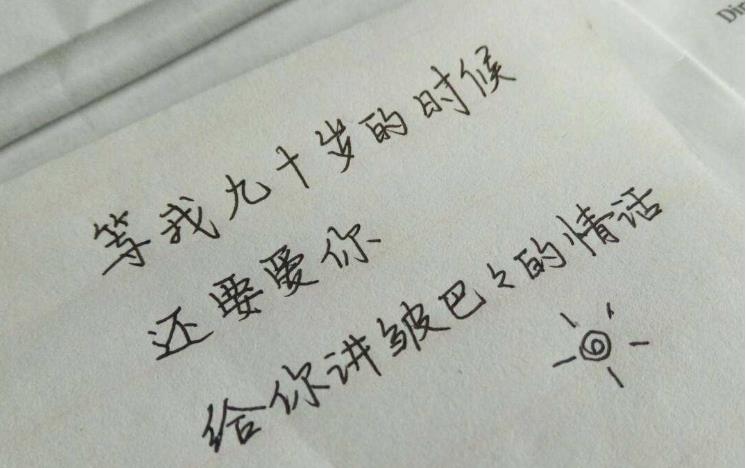 等我九十岁的时候
还要爱你
给你讲皱巴々的情话
Din